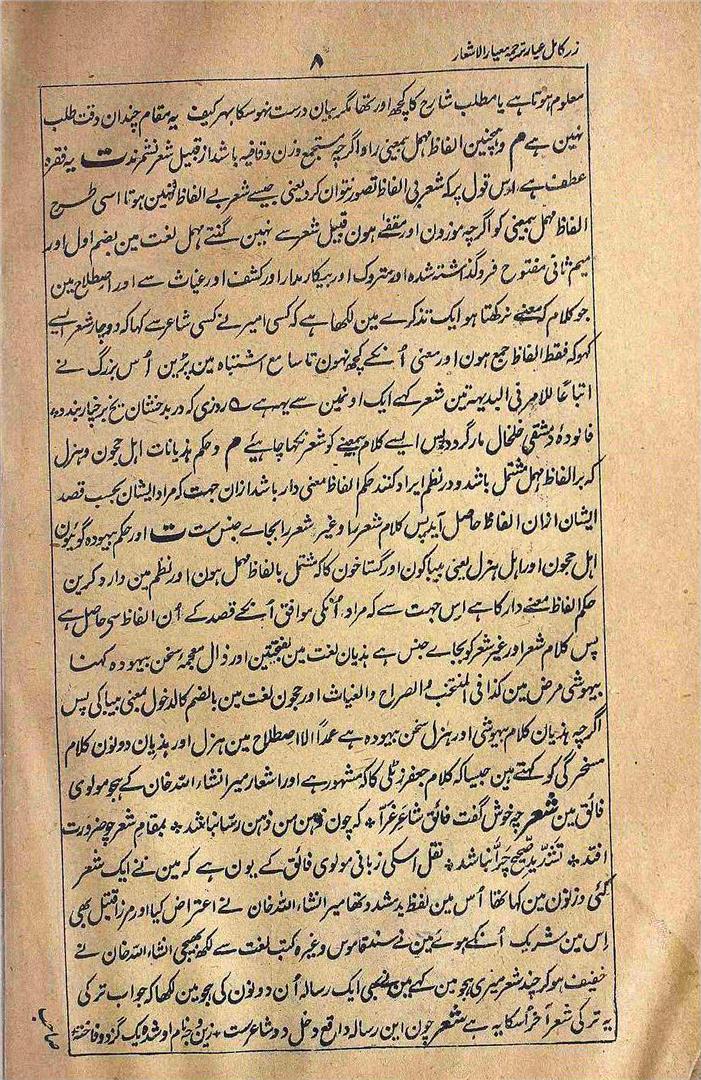 زر کامل عیار ترجمہ معیار الاشعار
۸
معلوم ہوتا ہے یا مطلب شارح کا کچھ اور تھا مگر بیان درست نہو سکا بہر کیف یہ مقام چندان دقت طلب
نہین ہے م و ہمچنین الفاظ مہمل بیمعنی را اگرچہ مستجمع وزن و قافیہ باشد از قبیل شعر نشمرند ت یہ فقرہ
عطف ہے اوس قول پر کہ شعر بی الفاظ تصور نتوان کرد یعنی جیسے شعر بے الفاظ نہین ہوتا اسی طرح
الفاظ مہمل بیمعنی کو اگرچہ موزون اور مقفے ہون قبیل شعر سے نہین گنتے مہمل لغت مین بضم اول اور
میم ثانی مفتوح فروگذاشتہ شدہ اور متروک اور بیکار مدار اور کشف اور غیاث سے اور اصطلاح مین
جو کلام کہ معنے نرکھتا ہو ایک تذکرے مین لکھا ہے کہ کسی امیر نے کسی شاعر سے کہا کہ دو چار شعر ایسے
کہو کہ فقط الفاظ جمع ہون اور معنی اُنکے کچھ نہون تا سامع اشتباہ مین پڑین اُس بزرگ نے
اتباعًا للامر فی البدیہہ تین شعر کہے ایک اونمین سے یہہ ہے روزی کہ در بدخشان یخ بر خیار بندد
فانودۂ دمشقی خلخال مار گردد پس ایسے کلام بیمعنے کو شعر نکہا چاہیئے م و حکم ہذیانات اہل مجون و ہزل
کہ بر الفاظ مہمل مشتمل باشد و در نظم ایراد کنند حکم الفاظ معنی دار باشد ازان جہت کہ مراد ایشان بحسب قصد
ایشان ازان الفاظ حاصل آید پس کلام شعر را و غیر شعر را بجاے جنس ست ت اور حکم بیہودہ گوئیون
اہل مجون اور اہل ہزل یعنی بیباکون اور گستاخون کا کہ مشتمل بالفاظ مہمل ہون اور نظم مین وارد کرین
حکم الفاظ معنے دار کا ہے اس جہت سے کہ مراد اُنکی موافق اُنکے قصد کے اُن الفاظ سی حاصل ہے
پس کلام شعر اور غیر شعر کو بجاے جنس ہے ہذیان لغت مین بفتحتین اور ذال معجمہ سخن بیہودہ کہنا
بیہوشی مرض مین کذا فی المنتخب و الصراح و الغیاث اور مجون لغت مین بالضم کالدخول معنی بیباکی پس
اگرچہ ہذیان کلام بیہوشی اور ہزل سخن بیہودہ ہے عمداً الا اصطلاح مین ہزل اور ہذیان دونون کلام
مسخرگی کو کہتے ہین جیسا کہ کلام جعفر زٹلی کا کہ مشہور ہے اور اشعار میر انشاء اللہ خان کے ہجو مولوی
فائق مین شعر چہ خوش گفت فائق شاعر غرّا * کہ چون ذہن من ذہن رسّا نباشد * بمقام شعر چو ضرورت
افتد * تشدّید صّحیح چرّا نباشد * نقل اسکی زبانی مولوی فائق کے یون ہے کہ مین نے ایک شعر
کئی دزلون مین کہا تھا اُس مین لفظ ید مشدد تھا میر انشاء اللہ خان نے اعتراض کیا اور مرزا قتیل بھی
اِس مین شریک اُنکے ہوئے مین نے سند قاموس وغیرہ کتب لغت سے لکھ بھیجی انشاء اللہ خان نے
خفیف ہو کر چند شعر میری ہجو مین کہے مین نے بھی ایک رسالہ اُن دونون کی ہجو مین لکھا کہ جواب ترکی
بہ ترکی شعر آخر اُسکا یہ ہے شعر چون این رسالہ واقع دخل دو شاعرست * زین وجہ نام او شدہ یک گز دو فاختہ
صاحب